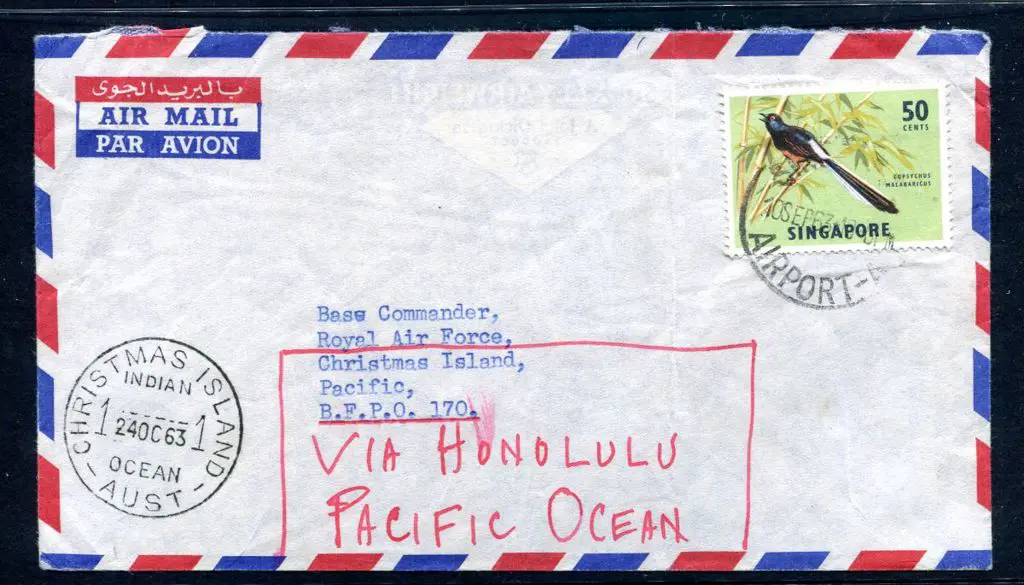 بالبريد الجوى
AIR MAIL
PAR AVION
50
CENTS
COPSYCHUS
MALABARICUS
SINGAPORE
10SEP63
AIRPORT-
Base Commander,
Royal Air Force,
Christmas Island,
Pacific,
B.F.P.O. 170.
VIA HONOLULU
PACIFIC OCEAN
CHRISTMAS ISLAND
INDIAN
1 24OC63 1
OCEAN
-AUST-